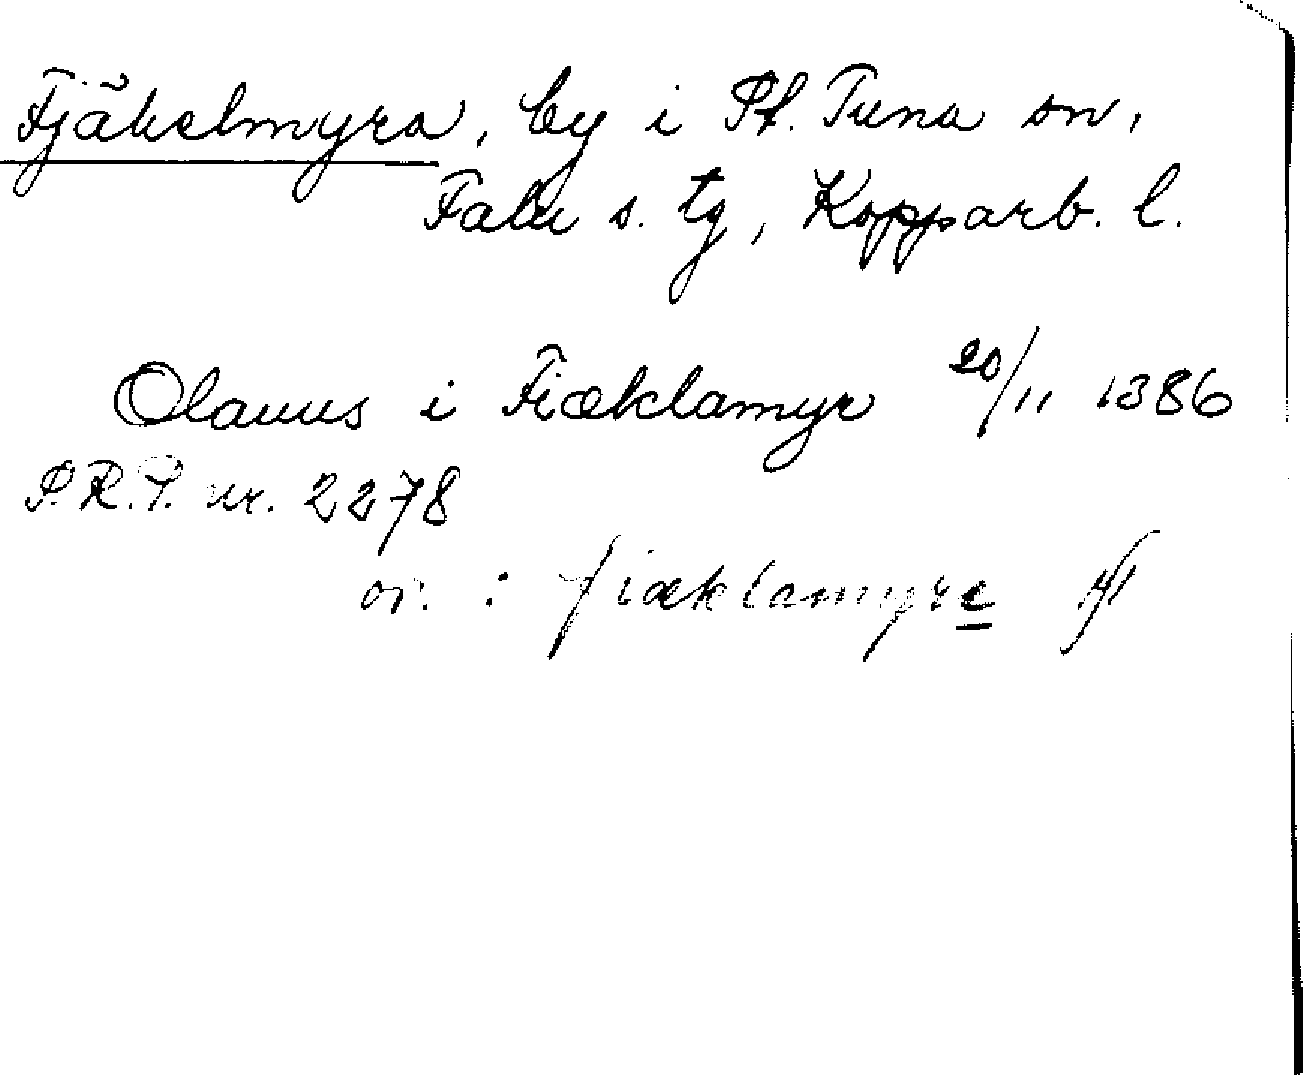 Fjäkelmyra, by i St. Tuna sn,
Falu s. tg, Kopparb. l.
Olauus i Fiæklamyr 20/11 1386
S.R.P. nr. 2278
or. : fiæklamyre